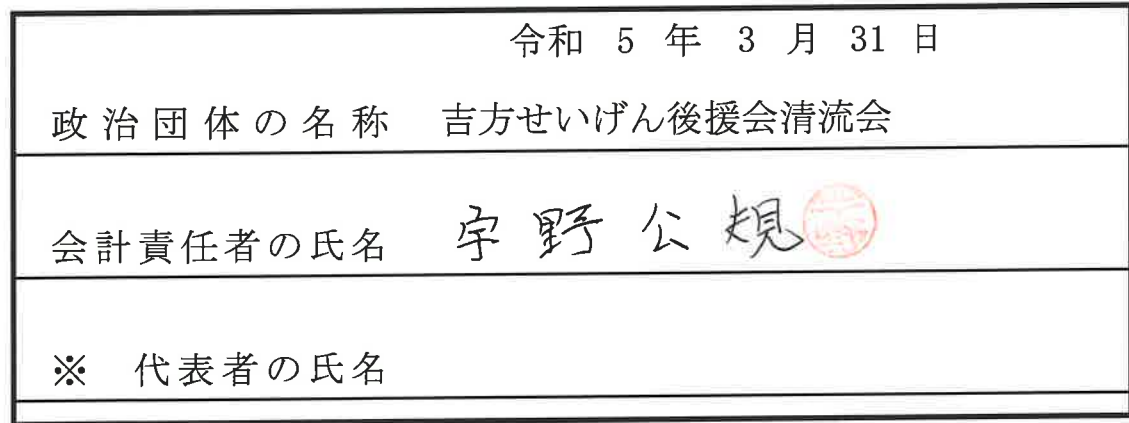 令和 5 年 3 月 31 日
政治団体の名称 吉方せいげん後援会清流会
会計責任者の氏名 宇野公規
※ 代表者の氏名